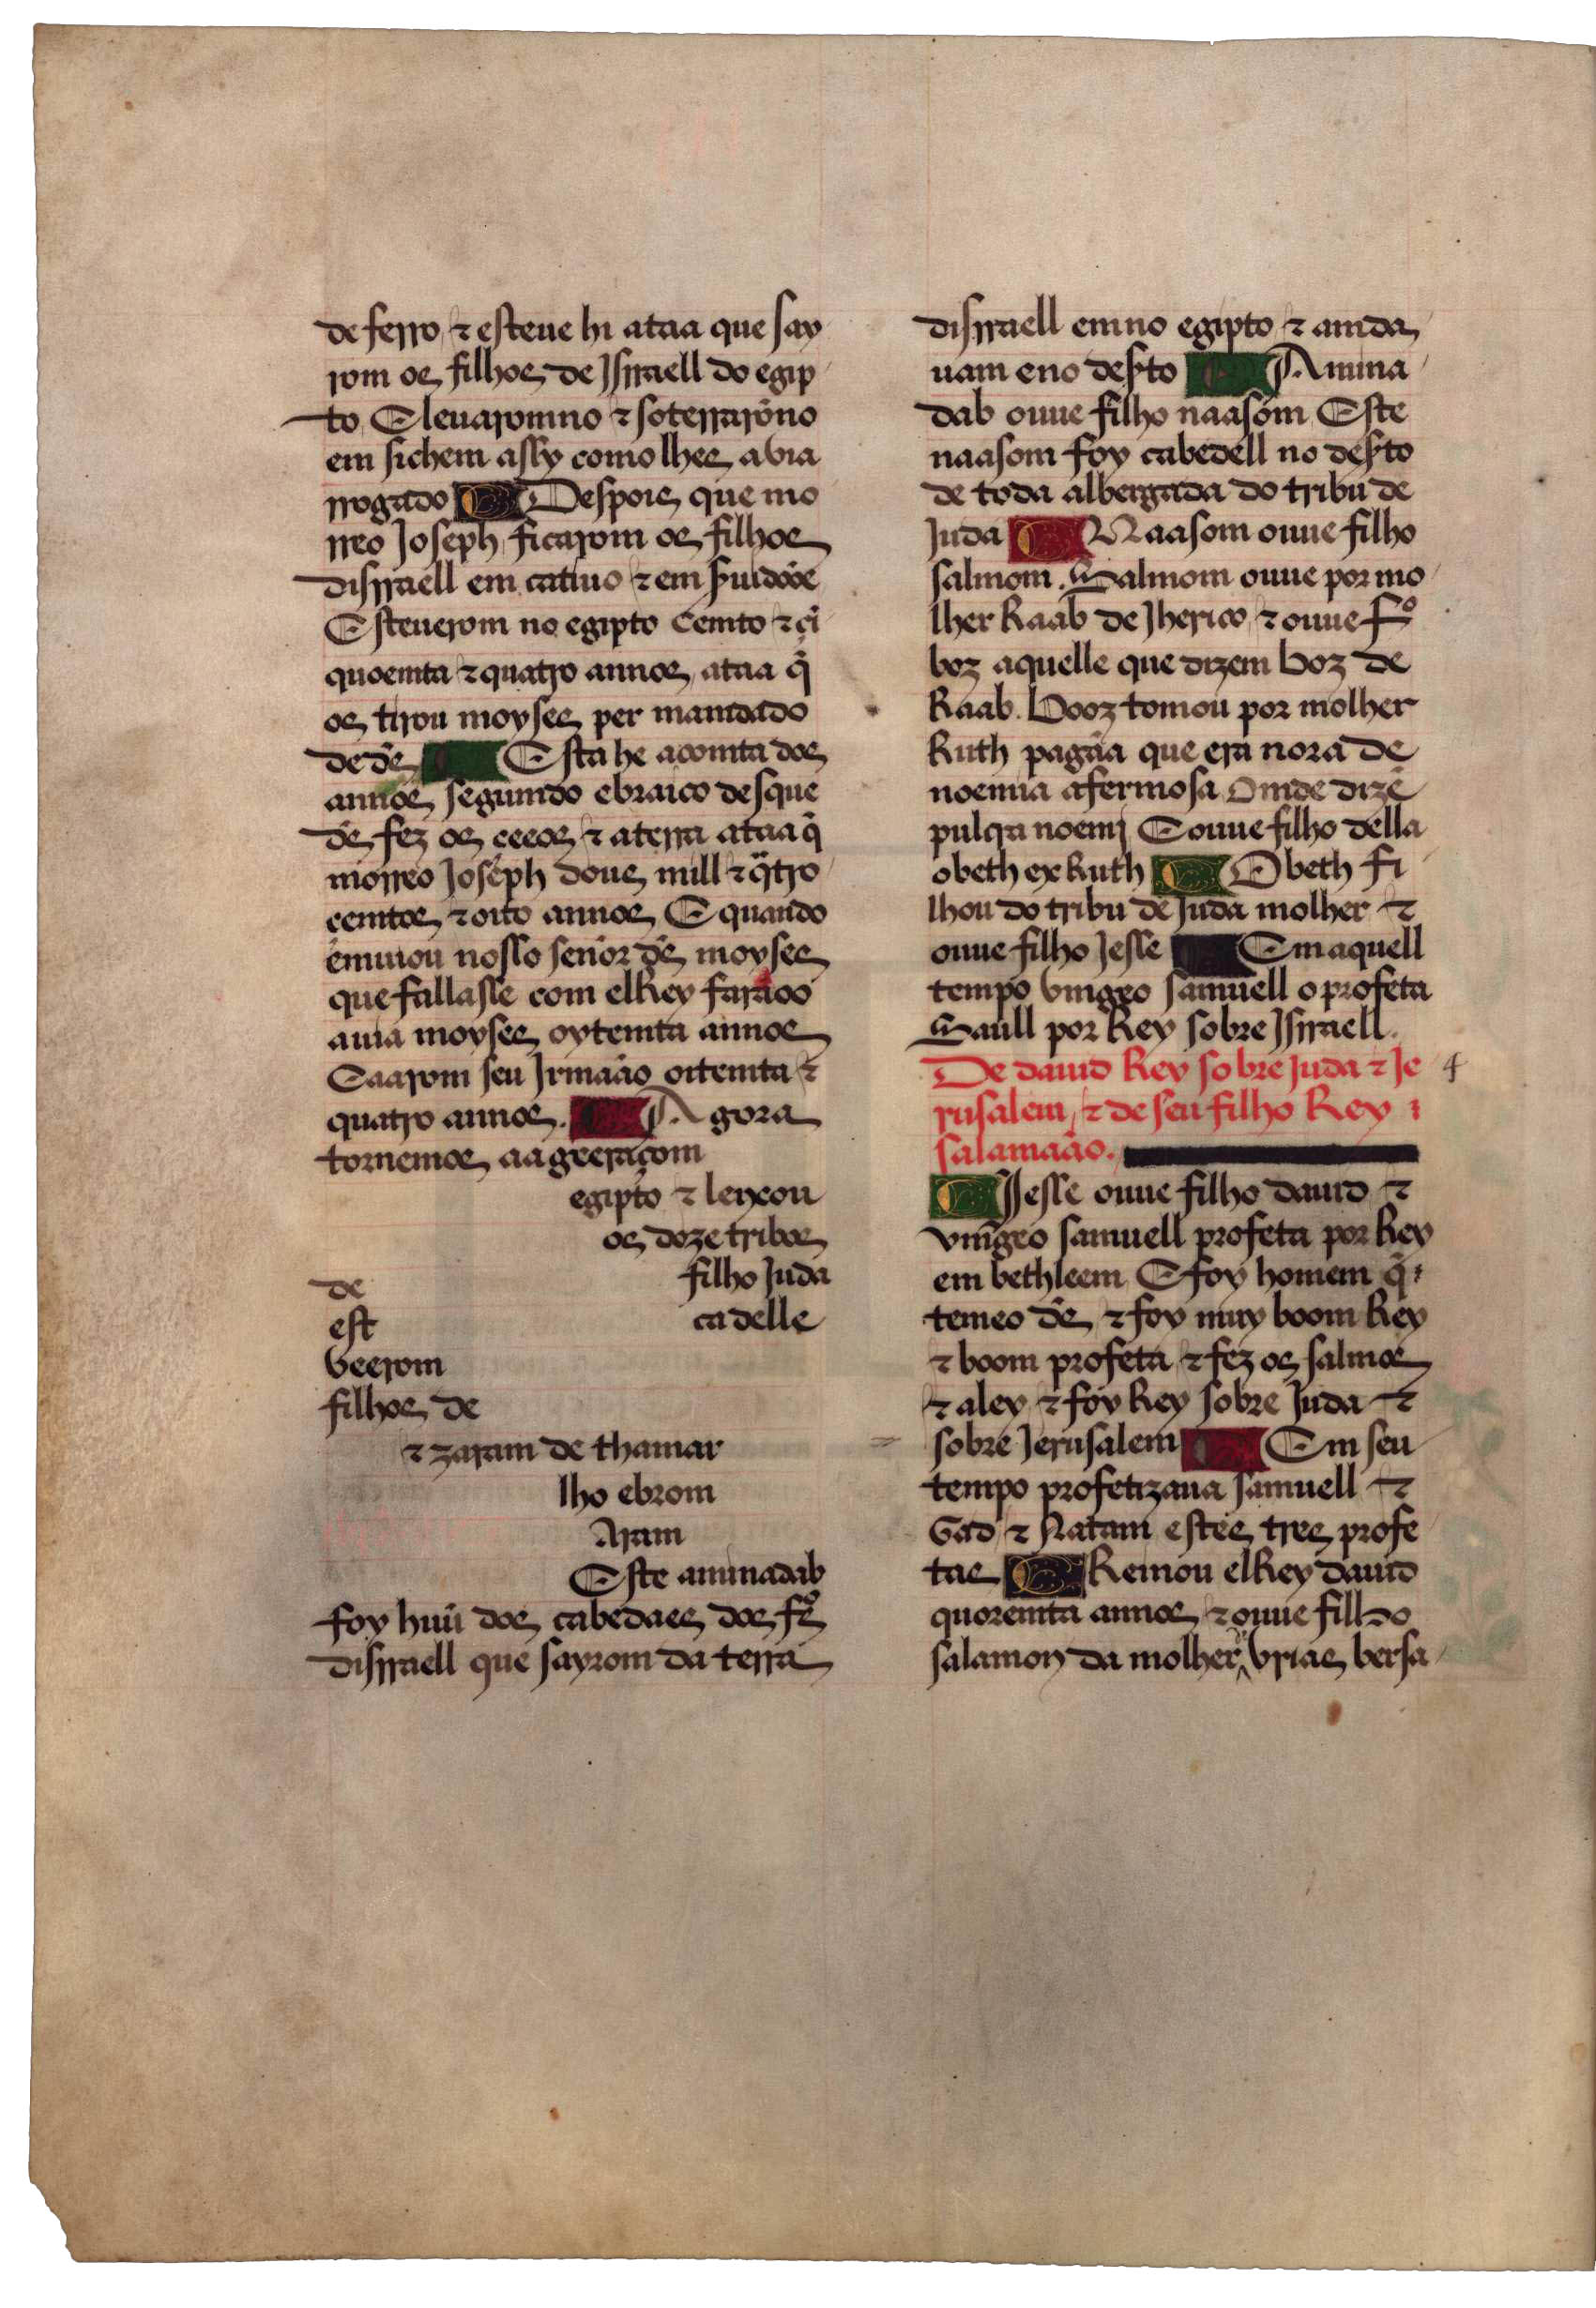 de ferro ⁊ esteue hi ataa que say
rom os filhos de Jsrraell do egip
to E leuaromno ⁊ soterrarõno
em sichem assy como lhes avia
rrogado Despois que mo
rreo Joseph ficarom os filhos
disrraell em catiuo ⁊ em
Esteuerom no egipto Cemto ⁊ çĩ
quoemta ⁊ quatro annos ataa q̃
os tirou moyses per mamdado
de ds̃ Esta he a comta dos
annos segumdo ebraico desque
ds̃ fez os ceeos ⁊ a terra ataa q̃
morreo Joseph dous mill ⁊ q̃tro
cemtos ⁊ oito annos E quando
emuiou nosso señor ds̃ moyses
que fallasse com elRey faraoo
auia moyses oytemta annos
E aarom seu Jrmaão oitemta ⁊
quatro annos. Agora
tornemos aa geeraçom
egipto ⁊ leyxou
os doze tribos
de filho Juda
est ca delle
veerom
filhos de
⁊ zaram de thamar
lho ebrom
Aram
Este aminadab
foy huũ dos cabedaes dos fos̃
disrraell que sayrom da terra
disrraell emno egipto ⁊ amda
uam eno des̃to Amina
dab ouue filho naasom Este
naasom foy cabedell no des̃to
de toda albergada do tribu de
Juda Naasom ouue filho
salmom. Salmom ouue por mo
lher Raab de Jherico ⁊ ouue fº
boz aquelle que dizem boz de
Raab. booz tomou por molher
Ruth pagãa que era nora de
noemia a fermosa Omde dizẽ
pulcra noemj E ouue filho della
obeth ex Ruth Obeth fi
lhou do tribu de Juda molher ⁊
ouue filho Jesse Em aquell
tempo vmgeo samuell o profeta
Saull por Rey sobre Jsrraell.
De dauid Rey sobre Juda ⁊ Je 4
rusalem ⁊ de seu filho Rey
salamaão.
Jesse ouue filho dauid ⁊
vmgeo samuell profeta por Rey
em bethleem E foy homem q̃
temeo ds̃ ⁊ foy muy boom Rey
⁊ boom profeta ⁊ fez os salmos
⁊ a ley ⁊ foy Rey sobre Juda ⁊
sobre Jerusalem Em seu
tempo profetizaua samuell ⁊
Gad ⁊ Natam estes tres profe
tas Reinou elRey dauid
quoremta annos ⁊ ouue filho
salamon da molher vrias bersa